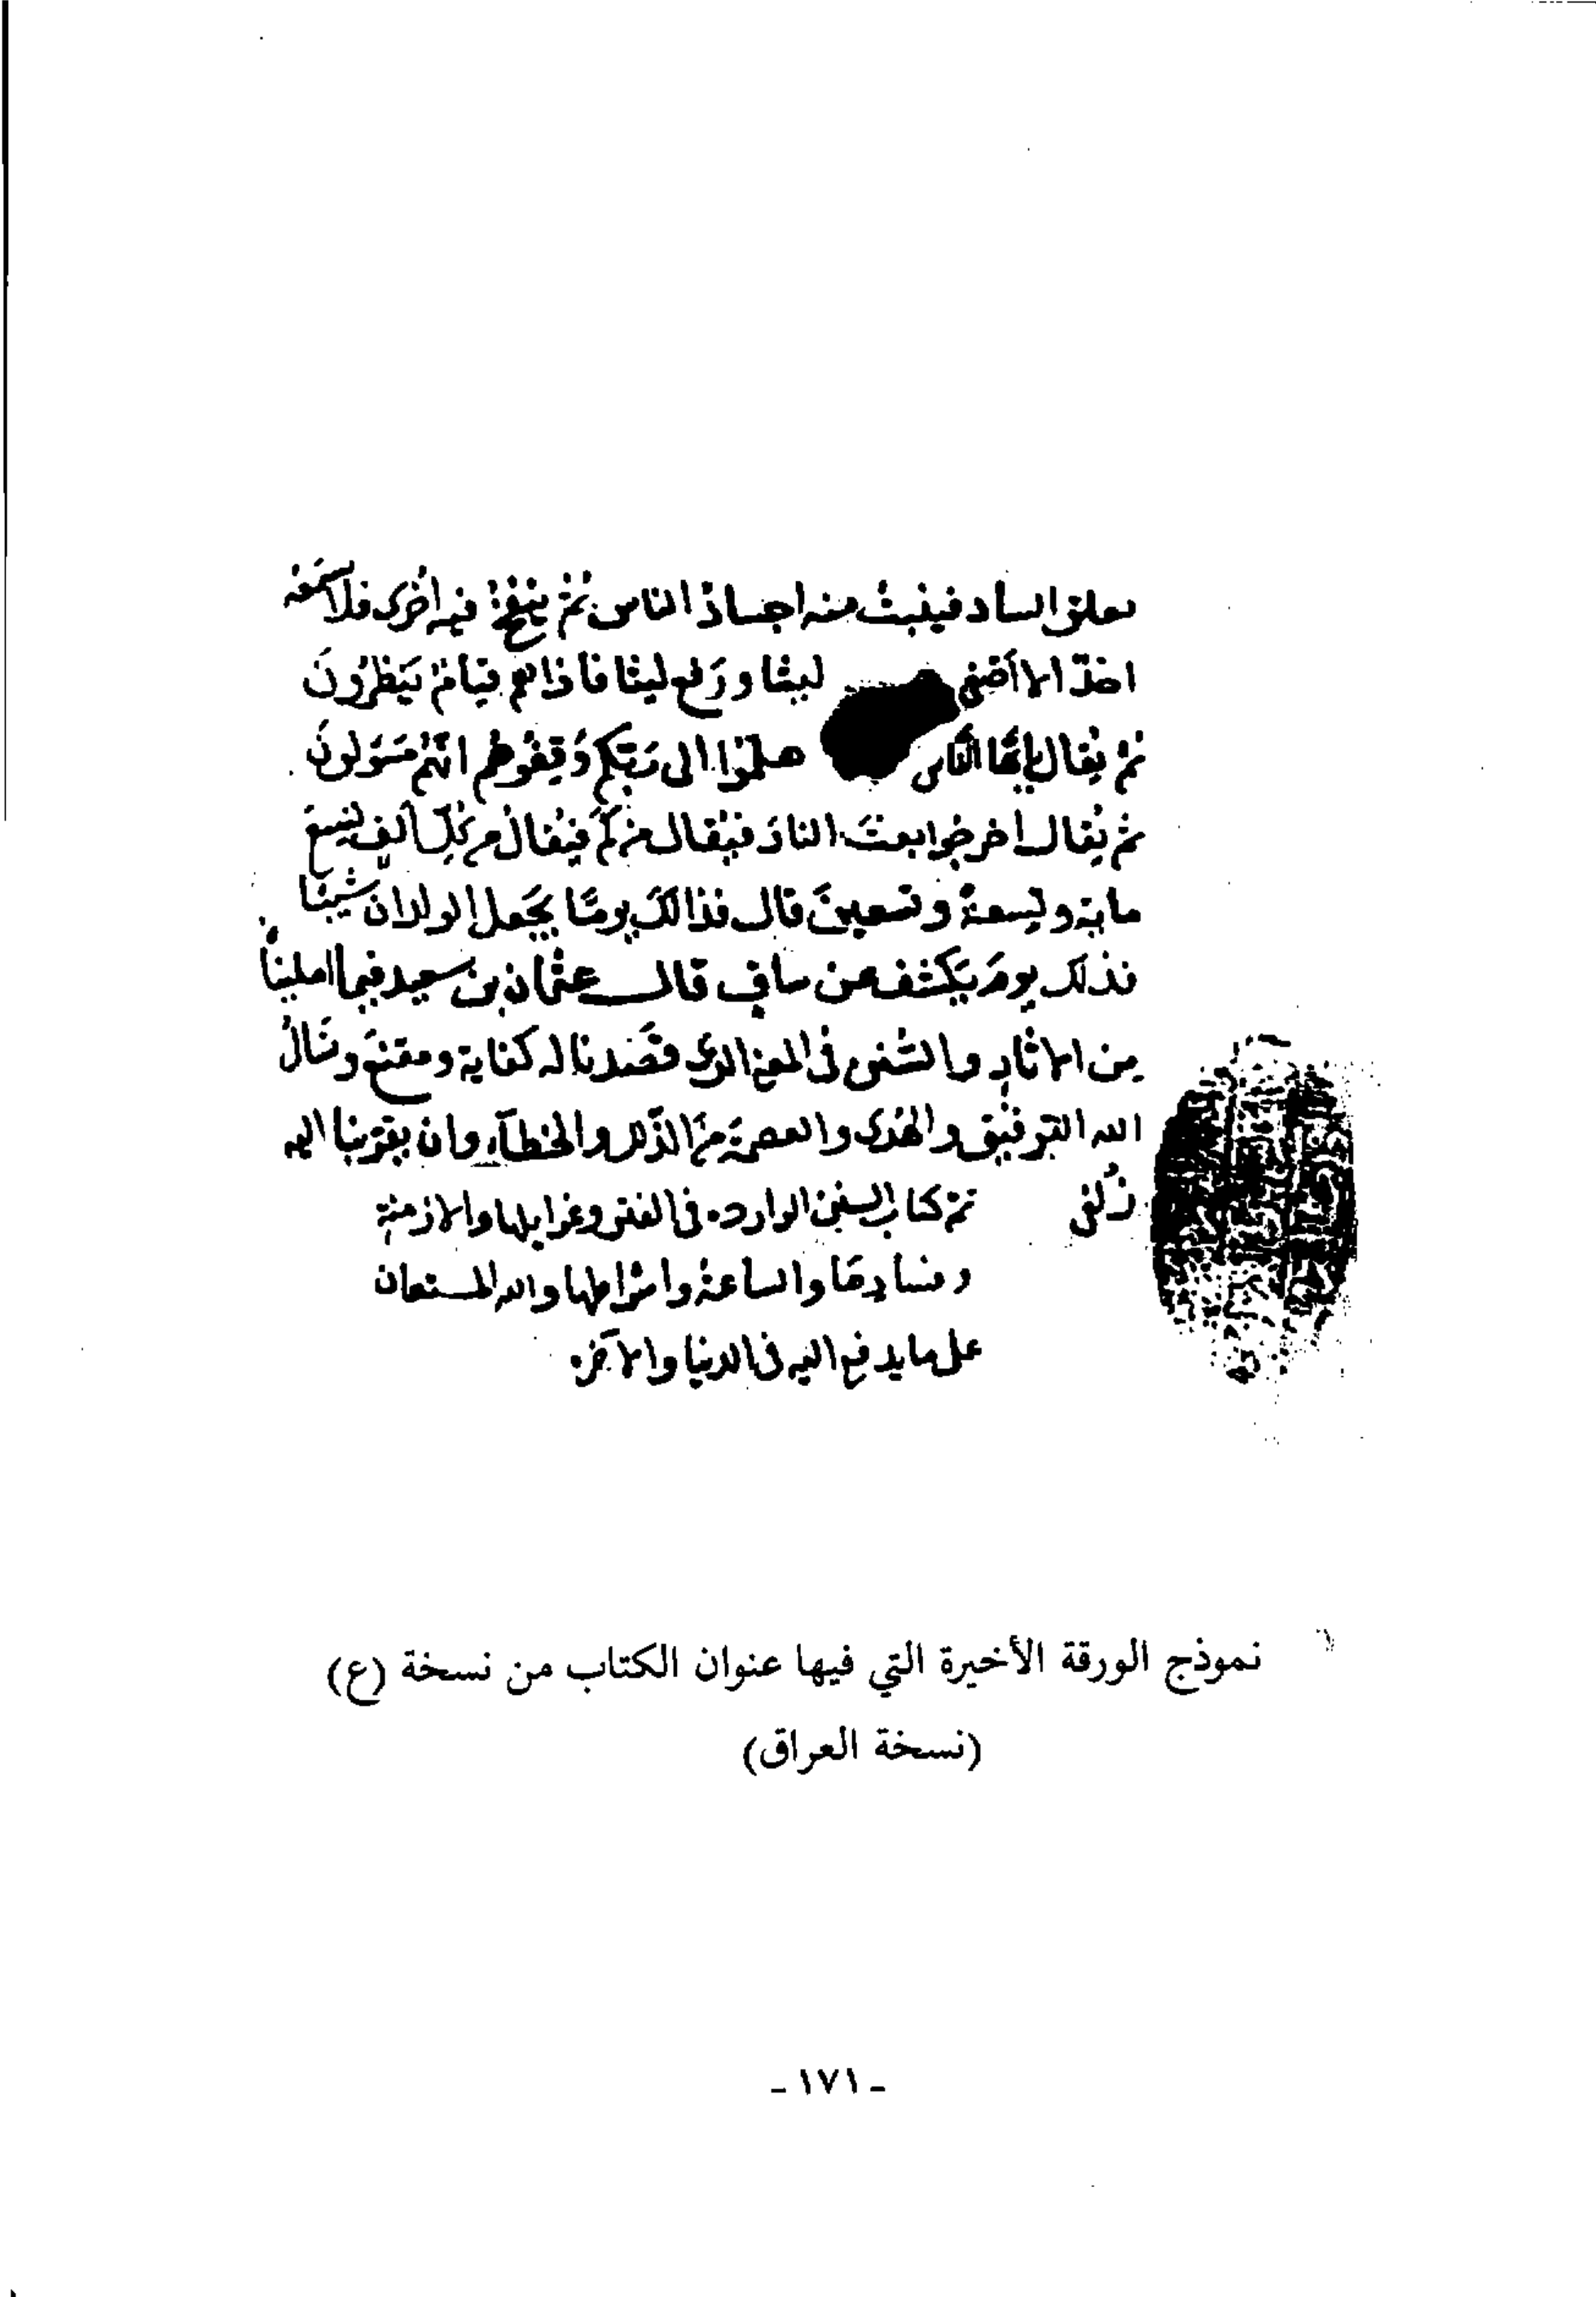 فينبت منه اجساد الناس ثم ينفخ فيه أخرى فلا يسمعه
احدٌ الا أصغى ليتا ورفع ليتا فاذا هم قيامٌ يَنظرُونَ
ثم يُقال يا يُّها النَّاس هلمّوا الى رَبّكم وَقِفُوهم انهم مَسَولونَ
ثم يُقال اخرجوا بعثَ النار فيقال من كم فيقال من كلِّ ألفٍ تسع
ماية وتسعةً وتسعينَ قال فذالك يومًا يجعل الولدان شيبًا
فذلك يومَ يكشف عن ساقٍ قال عثمان بن سعيد فيما املينا
من الاثارِ والسُّنن فى المعنى الذي قصَدنا له كفاية ومقنع ونسَالُ
الله التوفيق والهُدى والعصمة من الزّلل والخطآء وان يقرّبنا اليه
زُلفى
تم كتاب السنن الوارده فى الفتن وغوايلها والازمنة
وفسادِهَا والساعة واشراطها والله المستعان
على ما يدفع اليه فى الدنيا والآخره
نموذج الورقة الأخيرة التي فيها عنوان الكتاب من نسخة (ع)
(نسخة العراق)
ـ ١٧١ ـ